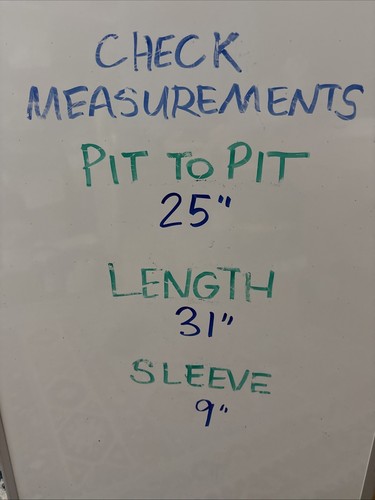 CHECK
MEASUREMENTS
PIT TO PIT
25"
LENGTH
31"
SLEEVE
9"